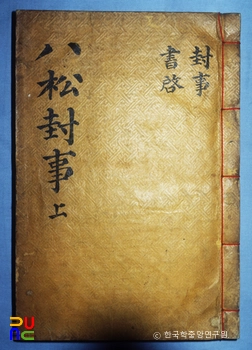 封事
書啓
八松封事 上
PUAC
© 한국학중앙연구원